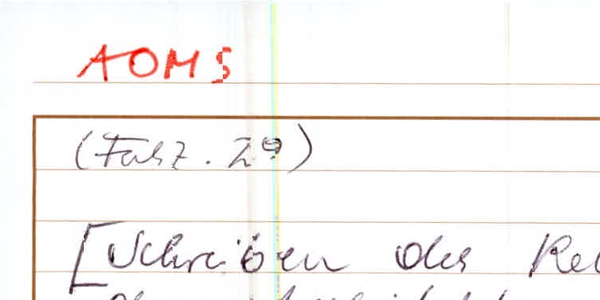 AOMS
(Fasz. 29)
[Schreiben des